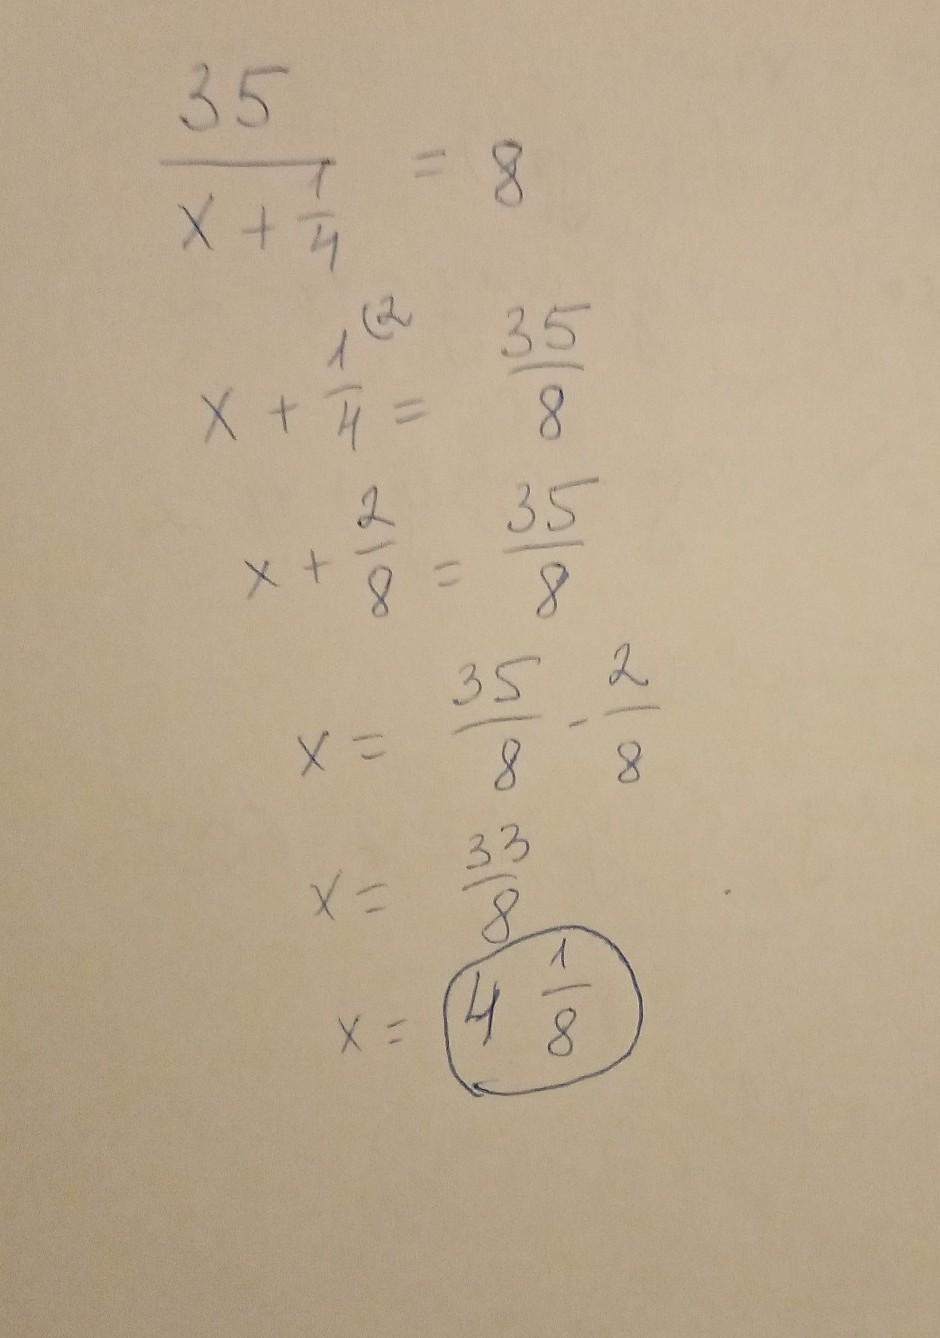 35/(x + 1/4) = 8
x + 1/4 (2 = 35/8
x + 2/8 = 35/8
x = 35/8 - 2/8
x = 33/8
x = 4 1/8